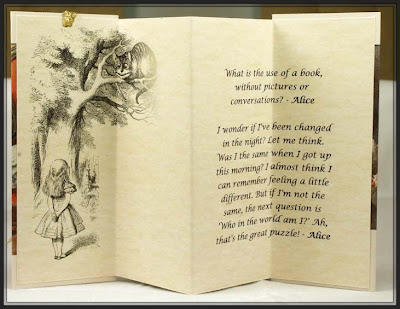 What is the use of a book,
without pictures or
conversations? - Alice
I wonder if I've been changed
in the night? Let me think.
Was I the same when I got up
this morning? I almost think I
can remember feeling a little
different. But if I'm not the
same, the next question is
'Who in the world am I?' Ah,
that's the great puzzle! - Alice